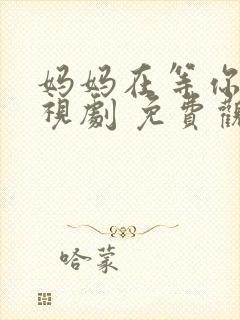 妈妈在等你
視劇 免費觀
哈蒙